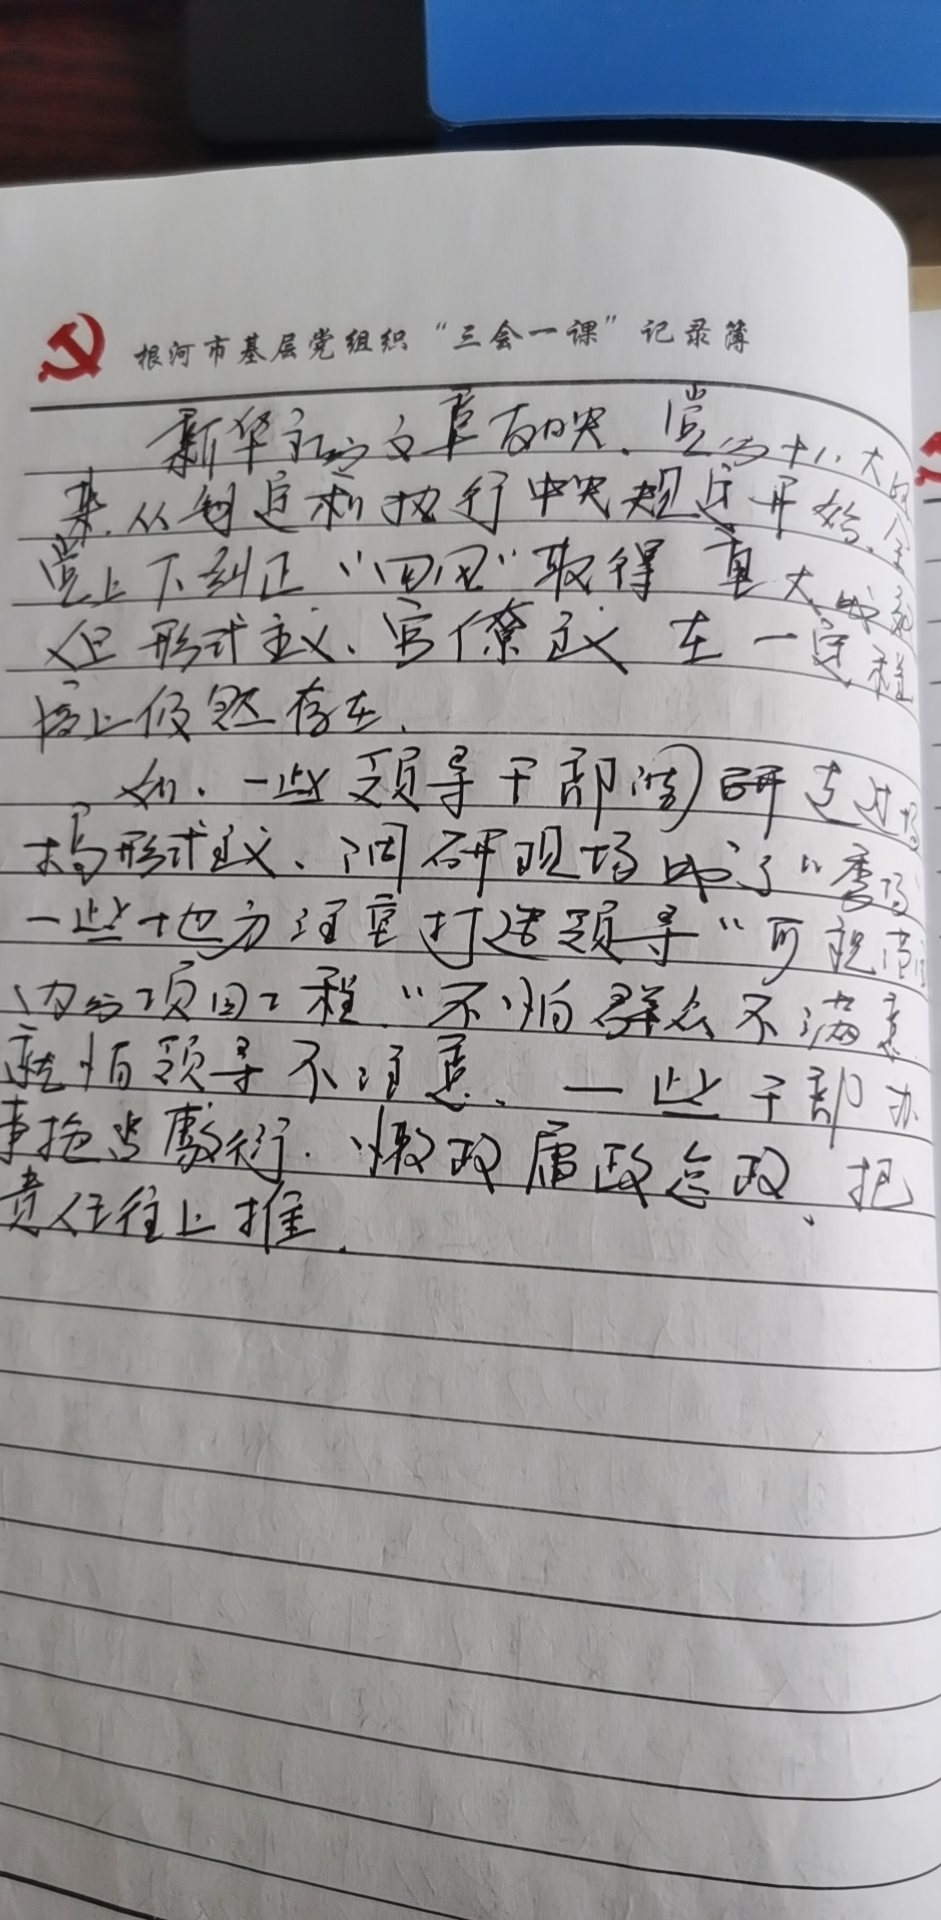 根河市基层党组织“三会一课”记录簿
新华社文章反映、党的十八大以
来、从制定和执行中央规定开始、全
党上下纠正“四风”取得重大成效
但形式主义、官僚主义在一定程
度上仍然存在、
如、一些领导干部调研走过场
搞形式主义、调研现场成了“秀场
一些地方注重打造领导“可视范围
内的项目工程“不怕群众不满意
就怕领导不注意、一些干部办
事拖沓敷衍、懒政庸政怠政、把
责任往上推、